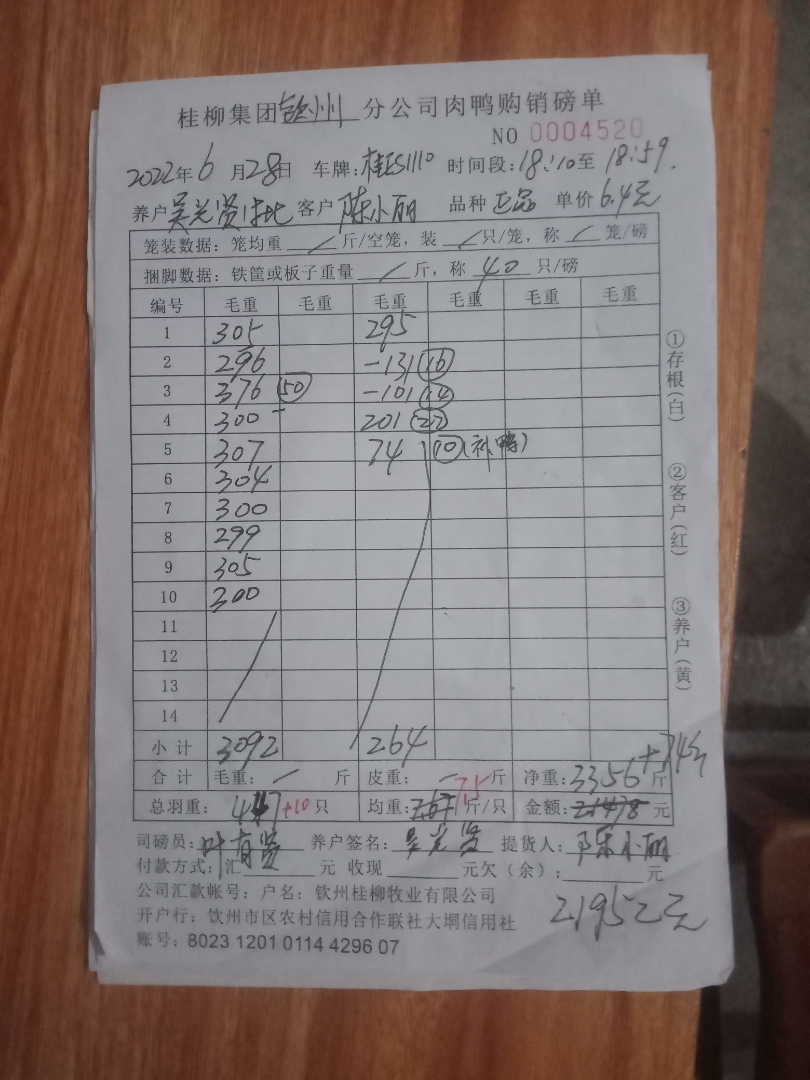 桂柳集团钦州分公司肉鸭购销磅单
NO 0004520
2022年6月28日 车牌:桂ES1110 时间段:18:10至18:59.
养户吴光贤 客户陈小丽 品种正品 单价6.4元
笼装数据: 笼均重 / 斤/空笼, 装 / 只/笼, 称 / 笼/磅
捆脚数据: 铁筐或板子重量 / 斤, 称 40 只/磅
编号 毛重 毛重 毛重 毛重 毛重 毛重
1 305 295
2 296 -131 (16)
3 376 (50) -101 (14)
4 300 201 (27)
5 307 74 (10)(补鸭)
6 304
7 300
8 299
9 305
10 300
11
12
13
14
小计 3092 264
合计 毛重: / 斤 皮重: - 斤 净重:3356斤 +74斤
总羽重: 447+10只 均重: 7.5斤/只 金额:21478元
司磅员:叶有贤 养户签名:吴光贤 提货人:陈小丽
付款方式:汇 元 收现 元欠(余): 元
公司汇款帐号: 户名: 钦州桂柳牧业有限公司
开户行: 钦州市区农村信用合作联社大垌信用社
21952元
账号: 8023 1201 0114 4296 07
①存根(白)
②客户(红)
③养户(黄)